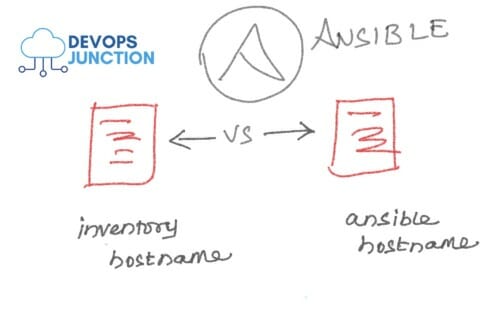 DEVOPS
JUNCTION
ANSIBLE
VS
inventory
hostname
ansible
hostname